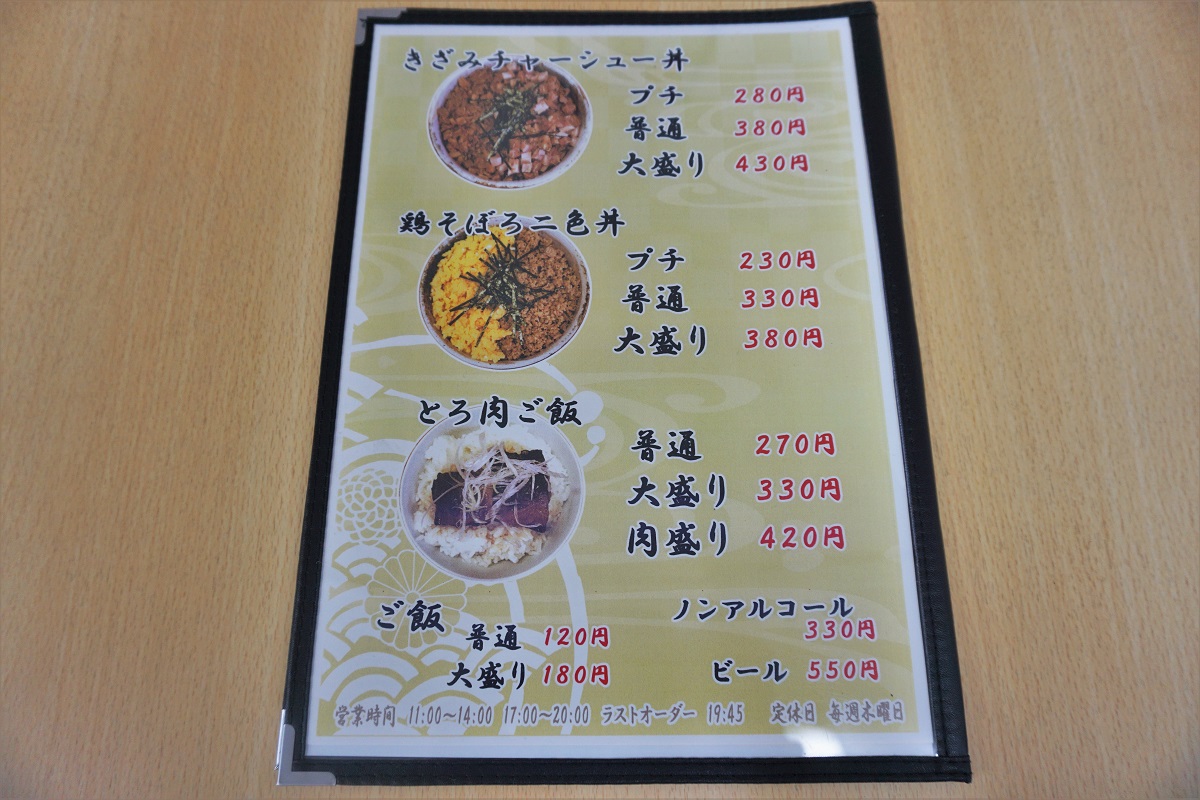 きざみチャーシュー丼
プチ 280円
普通 380円
大盛り 430円
鶏そぼろ二色丼
プチ 230円
普通 330円
大盛り 380円
とろ肉ご飯
普通 270円
大盛り 330円
肉盛り 420円
ご飯
普通 120円
大盛り 180円
ノンアルコール
330円
ビール 550円
営業時間 11:00〜14:00 17:00〜20:00 ラストオーダー 19:45 定休日 毎週木曜日